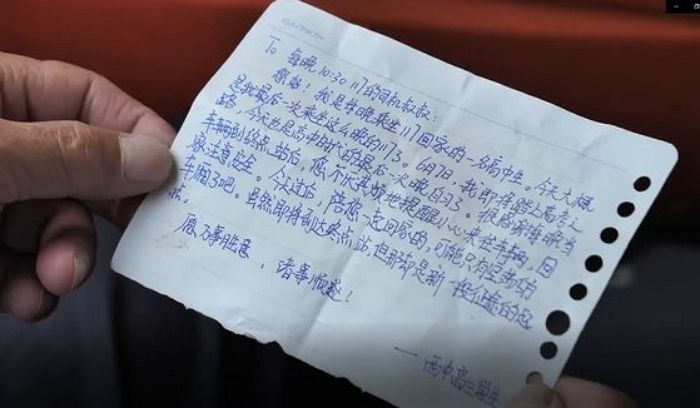 To 每晚10:30 117的司机叔叔：
您好！我是每晚乘坐117回家的一名高中生。今天大概
是我最后一次乘坐这么晚的117了。6月7日，我即将踏上高考之
路，今天也是高中时代的最后一次晚自习了。很感谢每晚当
车辆到终点站后，您不厌其烦地提醒小心来往车辆，回
家注意安全。今天过后，陪您一起回家的，可能只有空荡荡的
车厢了吧。虽然即将到达终点站，但前方却是新一段征途的起
点。
愿万事胜意，诸事顺遂！
——西中高三学生